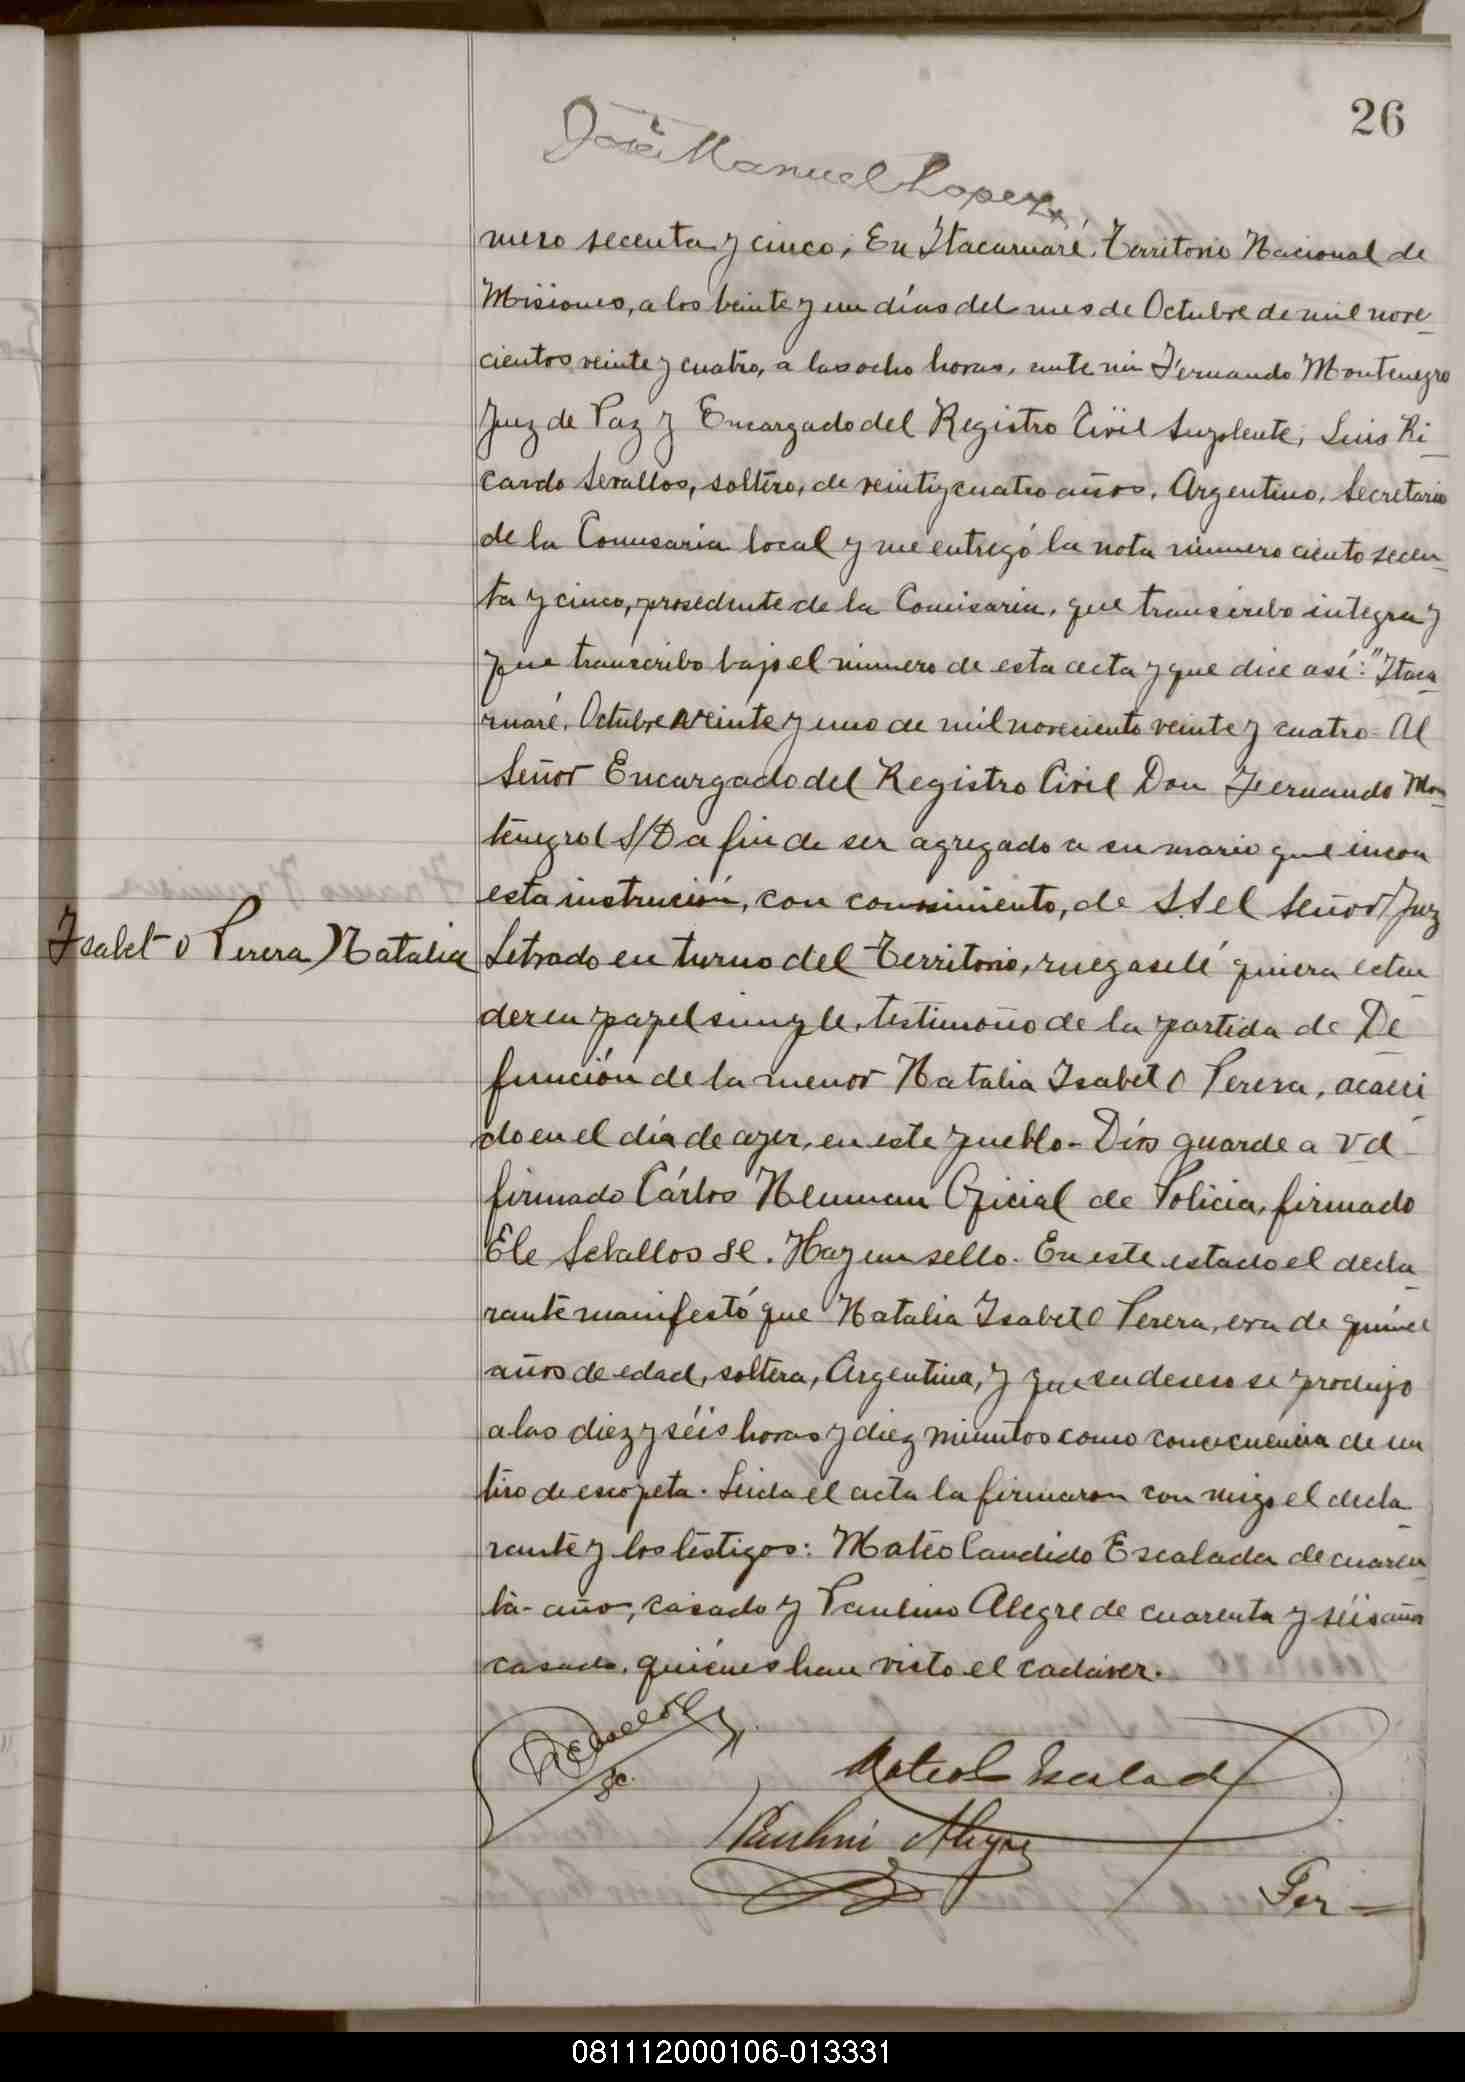 26
José Manuel Lopez
mero secenta y cinco; En Itacaruaré, Territorio Nacional de
Misiones, a los veinte y un días del mes de Octubre de mil nove-
cientos veinte y cuatro, a las ocho horas, ante mi Fernando Montenegro
Juez de Paz y Encargado del Registro Civil Suplente, Luis Ri-
cardo Sevallos, soltero, de veintiycuatro años, Argentino, Secretario
de la Comisaria local y me entregó la nota número ciento secen-
ta y cinco, prosedente de la Comisaria, que transcribo integra y
que transcribo bajo el número de esta acta y que dice así: "Itaca-
ruaré, Octubre veinte y uno de mil noveciento veinte y cuatro - Al
Señor Encargado del Registro Civil Don Fernando Mon-
tenegro S/D a fin de ser agregado a sumario que incoa
esta instrución, con de S.S el Señor Juez
Isabet o Perera Natalia
Letrado en turno del Territorio, ruegaselé quiera esten
der en papel simple, testimoño de la partida de De-
función de la menor Natalia Isabet O Perera, acaeci
do en el día de ayer, en este pueblo - Dios guarde a Vd -
firmado Cárlos Neuman Oficial de Policia, firmado
Ele Seballos Se. Hay un sello. En este estado el decla-
rante manifestó que Natalia Isabet O Perera, era de quince
años de edad, soltera, Argentina, y que su deseso se produjo
a las diez y séis horas y diez minutos como concecuencia de un
tiro de escopeta. Leida el acta la firmaron con migo el decla-
rante y los testigos: Mateo Candido Escalada de cuaren-
ta años, casado y Paulino Alegre de cuarenta y séis años
casado, quiénes han visto el cadáver.
Sc.
Mateo C Escalada
Paulino Alegre
Fer =
081112000106-013331